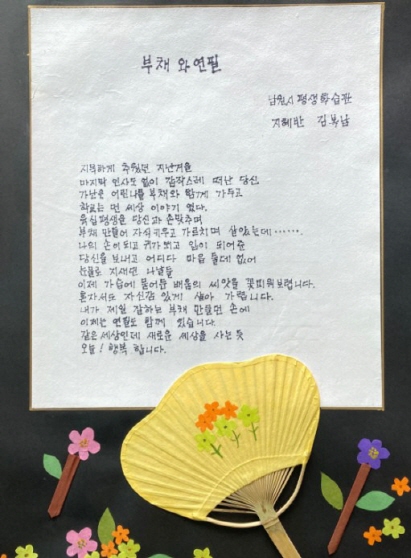 부채 와 연필
남원시 평생학습관
지혜반 김복남
지독하게 추웠던 지난겨울
마지막 인사도 없이 갑작스레 떠난 당신
가난은 어린나를 부채와 함께 가두고
학교는 먼 세상 이야기 였다.
육십평생을 당신과 손맞추며
부채 만들어 자식키우고 가르치며 살았는데…….
나의 손이되고 귀가되고 입이 되어준
당신을 보내고 어디다 마음 둘데 없어
눈물로 지새던 나날들
이제 가슴에 묻어둔 배움의 씨앗을 꽃피워보렵니다.
혼자서도 자신감 있게 살아 가렵니다.
내가 제일 잘하는 부채 만들던 손에
이제는 연필도 함께 있습니다.
같은세상인데 새로운 세상을 사는듯
오늘! 행복 합니다.